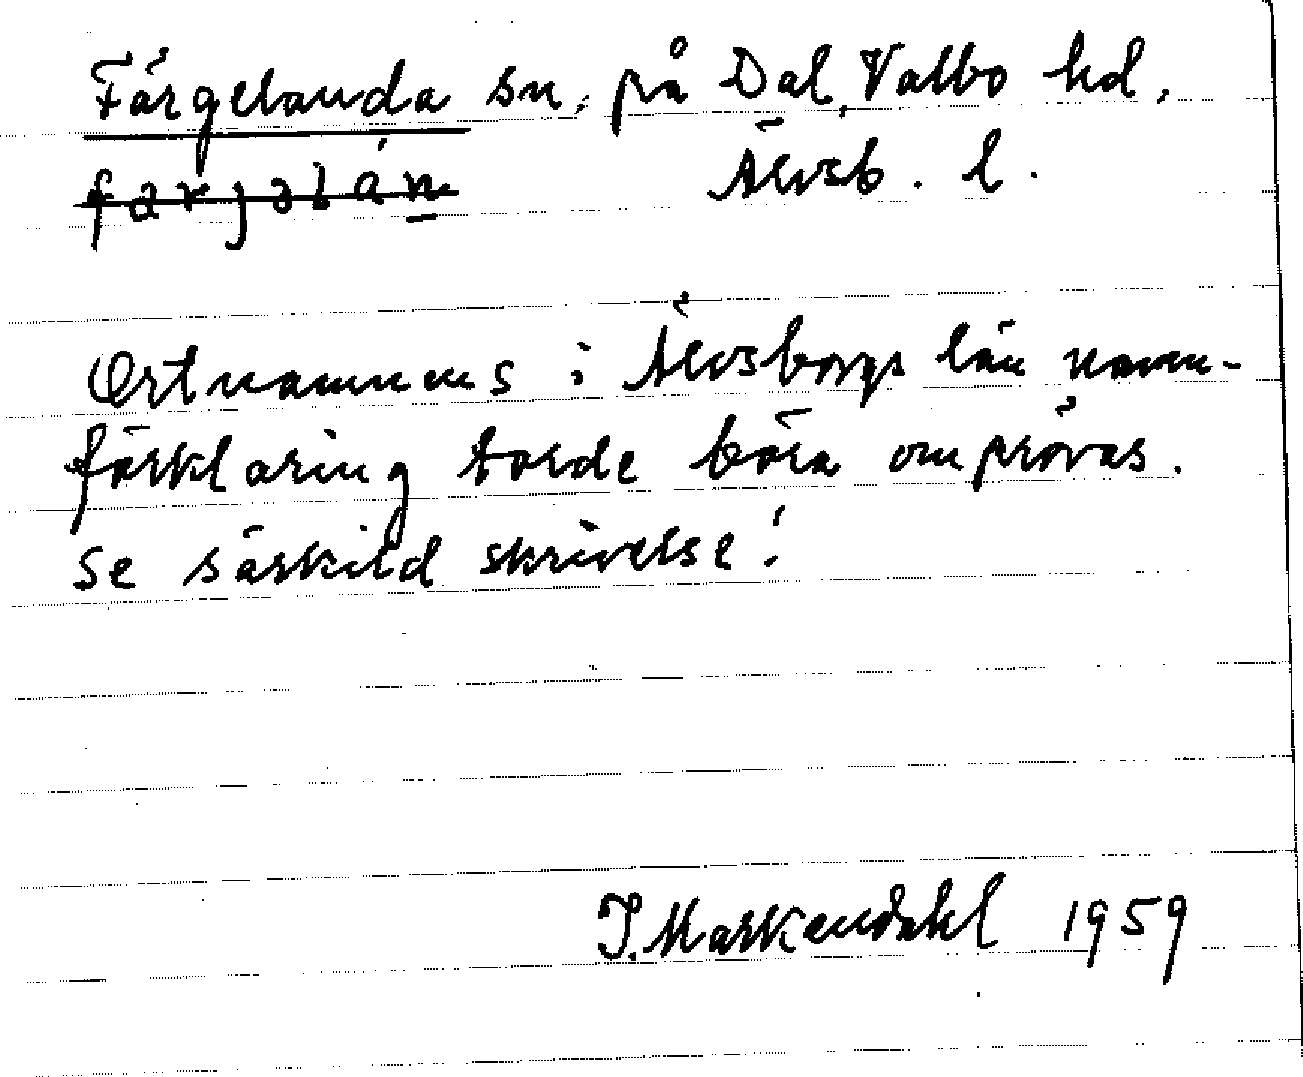 Färgelanda sn, på Dal, Valbo hd,
Älvsb. l.
farjəlán
Ortnamnens i Älvsborgs län namn-
förklaring torde böra omprövas.
Se särskild skrivelse!
J. Markendahl 1959